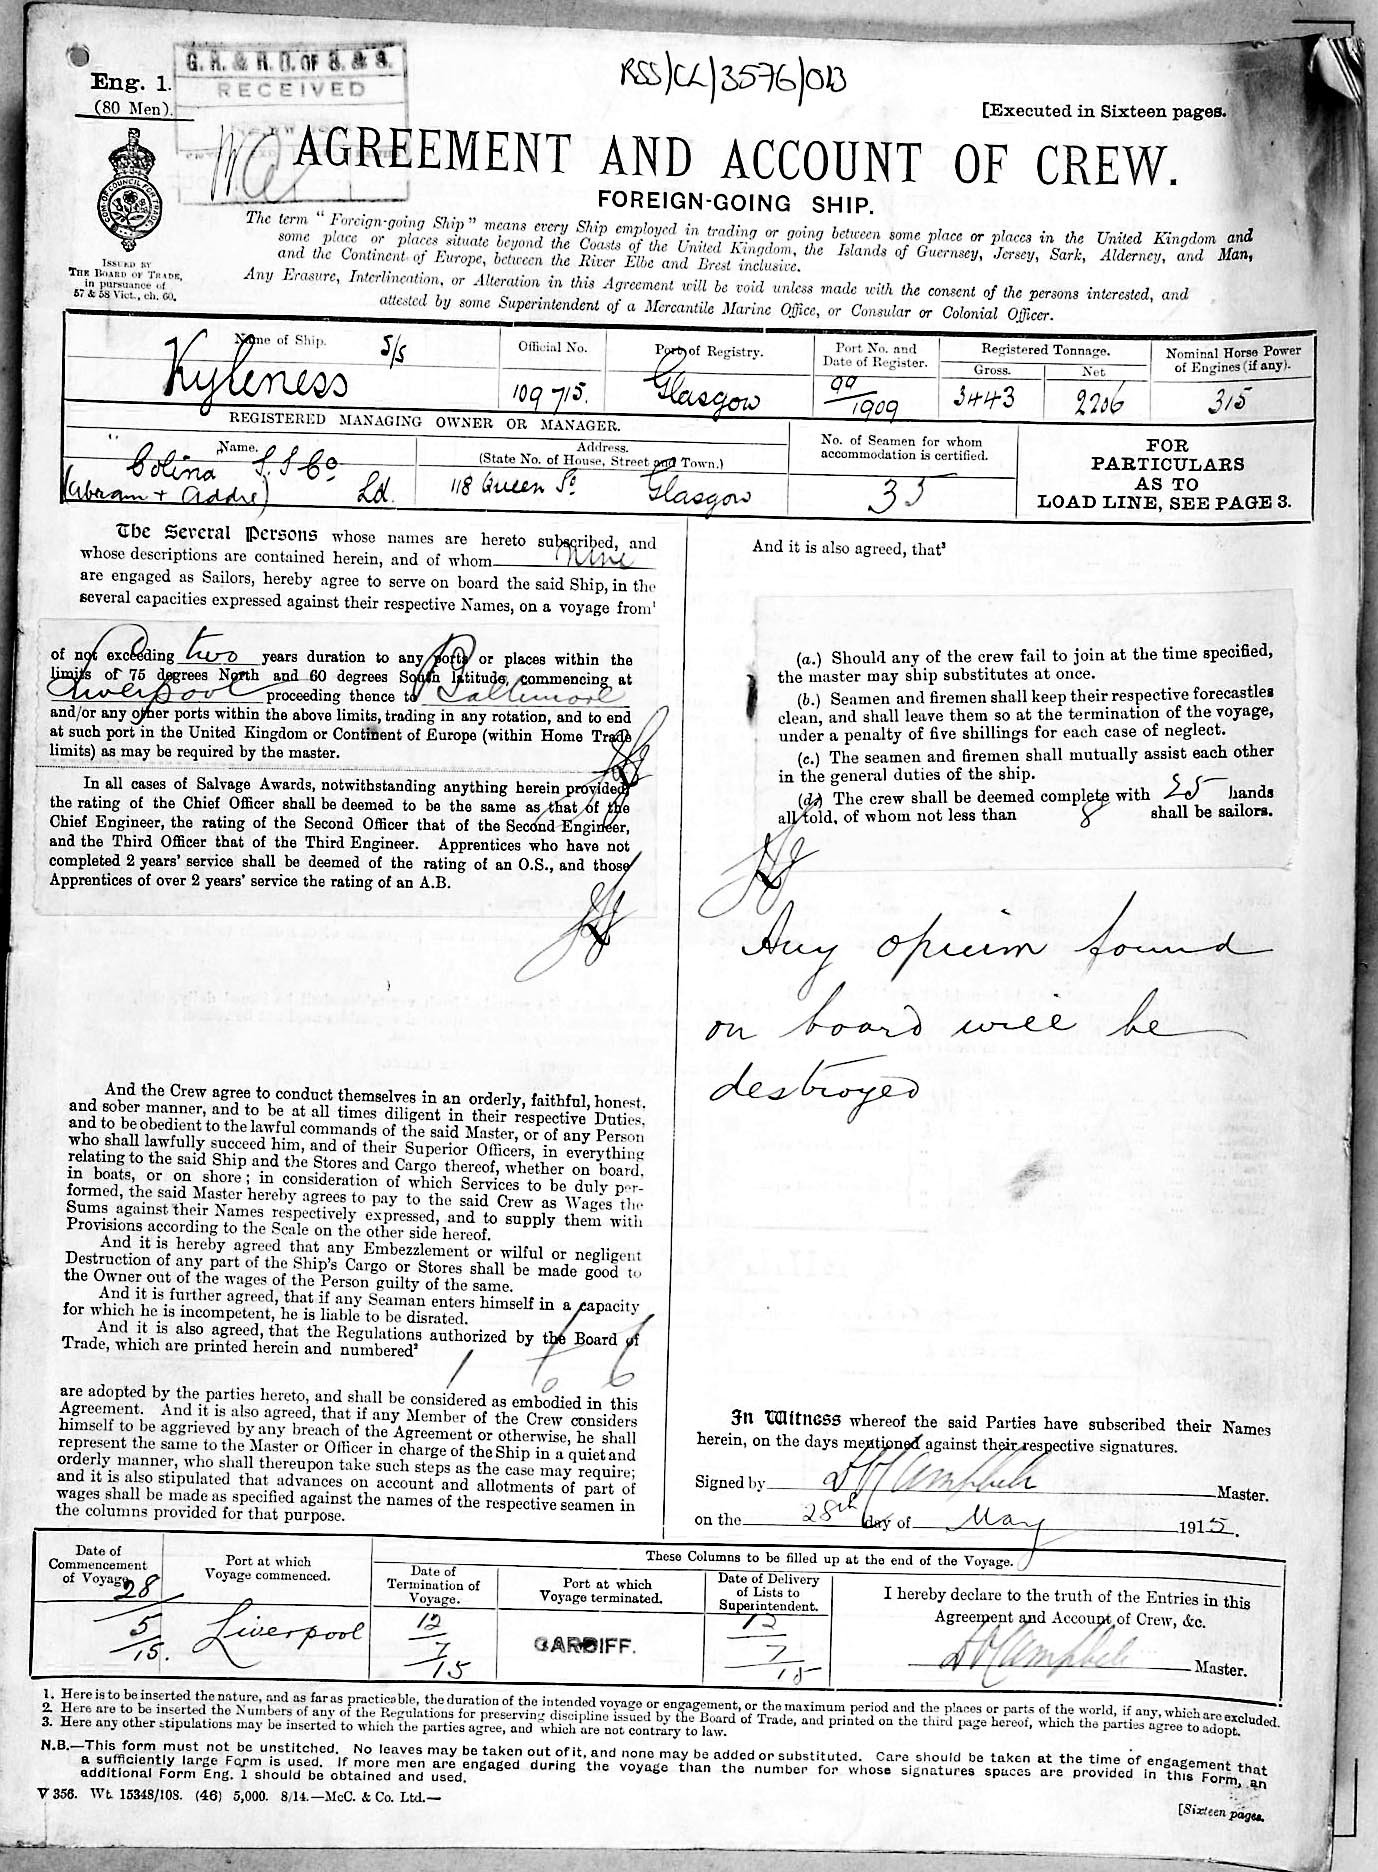 G. R. & R. O. OF S. & S.
RECEIVED
RSS/CL/3576/013
Eng. 1.
(80 Men).
[Executed in Sixteen pages.
AGREEMENT AND ACCOUNT OF CREW.
FOREIGN-GOING SHIP.
ISSUED BY
THE BOARD OF TRADE,
in pursuance of
57 & 58 Vict., ch. 60.
The term "Foreign-going Ship" means every Ship employed in trading or going between some place or places in the United Kingdom and
some place or places situate beyond the Coasts of the United Kingdom, the Islands of Guernsey, Jersey, Sark, Alderney, and Man,
and the Continent of Europe, between the River Elbe and Brest inclusive.
Any Erasure, Interlineation, or Alteration in this Agreement will be void unless made with the consent of the persons interested, and
attested by some Superintendent of a Mercantile Marine Office, or Consular or Colonial Officer.
Name of Ship.
S/S
Kyleness
Official No.
109715.
Port of Registry.
Glasgow
Port No. and
Date of Register.
99/1909
Registered Tonnage.
Gross.
3443
Net
2206
Nominal Horse Power
of Engines (if any).
315
REGISTERED MANAGING OWNER OR MANAGER.
Name.
Colina S.S Co
(Abram & Addie) Ld.
Address.
(State No. of House, Street and Town.)
118 Queen St Glasgow
No. of Seamen for whom
accommodation is certified.
35
FOR
PARTICULARS
AS TO
LOAD LINE, SEE PAGE 3.
The Several Persons whose names are hereto subscribed, and
whose descriptions are contained herein, and of whom nine
are engaged as Sailors, hereby agree to serve on board the said Ship, in the
several capacities expressed against their respective Names, on a voyage from¹
of not exceeding two years duration to any ports or places within the
limits of 75 degrees North and 60 degrees South latitude, commencing at
Liverpool proceeding thence to Baltimore
and/or any other ports within the above limits, trading in any rotation, and to end
at such port in the United Kingdom or Continent of Europe (within Home Trade
limits) as may be required by the master.
In all cases of Salvage Awards, notwithstanding anything herein provided
the rating of the Chief Officer shall be deemed to be the same as that of the
Chief Engineer, the rating of the Second Officer that of the Second Engineer,
and the Third Officer that of the Third Engineer. Apprentices who have not
completed 2 years' service shall be deemed of the rating of an O.S., and those
Apprentices of over 2 years' service the rating of an A.B.
And the Crew agree to conduct themselves in an orderly, faithful, honest,
and sober manner, and to be at all times diligent in their respective Duties,
and to be obedient to the lawful commands of the said Master, or of any Person
who shall lawfully succeed him, and of their Superior Officers, in everything
relating to the said Ship and the Stores and Cargo thereof, whether on board,
in boats, or on shore; in consideration of which Services to be duly per-
formed, the said Master hereby agrees to pay to the said Crew as Wages the
Sums against their Names respectively expressed, and to supply them with
Provisions according to the Scale on the other side hereof.
And it is hereby agreed that any Embezzlement or wilful or negligent
Destruction of any part of the Ship's Cargo or Stores shall be made good to
the Owner out of the wages of the Person guilty of the same.
And it is further agreed, that if any Seaman enters himself in a capacity
for which he is incompetent, he is liable to be disrated.
And it is also agreed, that the Regulations authorized by the Board of
Trade, which are printed herein and numbered²
1 to 6
are adopted by the parties hereto, and shall be considered as embodied in this
Agreement. And it is also agreed, that if any Member of the Crew considers
himself to be aggrieved by any breach of the Agreement or otherwise, he shall
represent the same to the Master or Officer in charge of the Ship in a quiet and
orderly manner, who shall thereupon take such steps as the case may require;
and it is also stipulated that advances on account and allotments of part of
wages shall be made as specified against the names of the respective seamen in
the columns provided for that purpose.
And it is also agreed, that³
(a.) Should any of the crew fail to join at the time specified,
the master may ship substitutes at once.
(b.) Seamen and firemen shall keep their respective forecastles
clean, and shall leave them so at the termination of the voyage,
under a penalty of five shillings for each case of neglect.
(c.) The seamen and firemen shall mutually assist each other
in the general duties of the ship.
(d.) The crew shall be deemed complete with 25 hands
all told, of whom not less than 8 shall be sailors.
Any opium found
on board will be
destroyed
In Witness whereof the said Parties have subscribed their Names
herein, on the days mentioned against their respective signatures.
Signed by D C Campbell Master.
on the 28th day of May 1915.
Date of
Commencement
of Voyage.
28/5/15.
Port at which
Voyage commenced.
Liverpool
These Columns to be filled up at the end of the Voyage.
Date of
Termination of
Voyage.
12/7/15
Port at which
Voyage terminated.
CARDIFF.
Date of Delivery
of Lists to
Superintendent.
12/7/15
I hereby declare to the truth of the Entries in this
Agreement and Account of Crew, &c.
D C Campbell Master.
1. Here is to be inserted the nature, and as far as practicable, the duration of the intended voyage or engagement, or the maximum period and the places or parts of the world, if any, which are excluded.
2. Here are to be inserted the Numbers of any of the Regulations for preserving discipline issued by the Board of Trade, and printed on the third page hereof, which the parties agree to adopt.
3. Here any other stipulations may be inserted to which the parties agree, and which are not contrary to law.
N.B.—This form must not be unstitched. No leaves may be taken out of it, and none may be added or substituted. Care should be taken at the time of engagement that
a sufficiently large Form is used. If more men are engaged during the voyage than the number for whose signatures spaces are provided in this Form, an
additional Form Eng. 1 should be obtained and used.
V 356. Wt. 15348/108. (46) 5,000. 8/14.—McC. & Co. Ltd.—
[Sixteen pages.